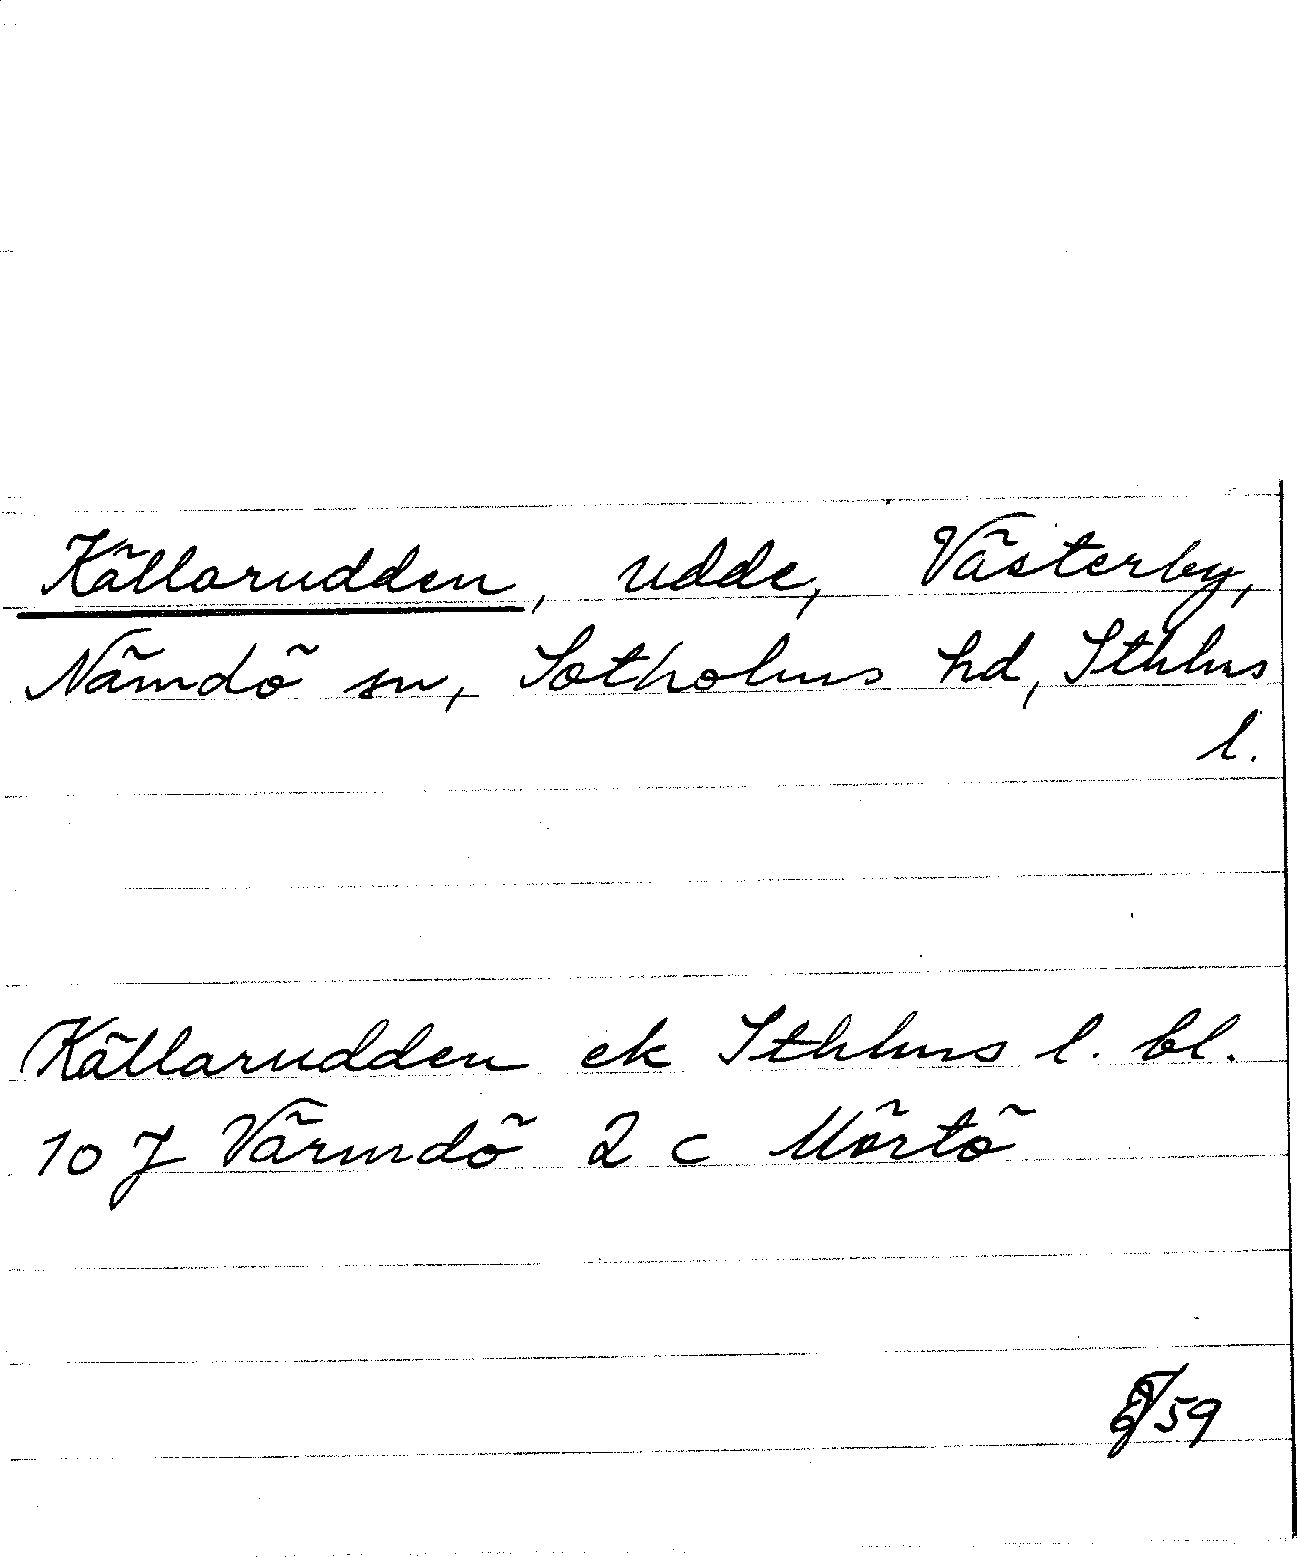 Källarudden, udde, Västerby,
Nämdö sn, Sotholms hd, Sthlms
l.
Källarudden ek Sthlms l. bl.
10 J Värmdö 2 c Mörtö
/59